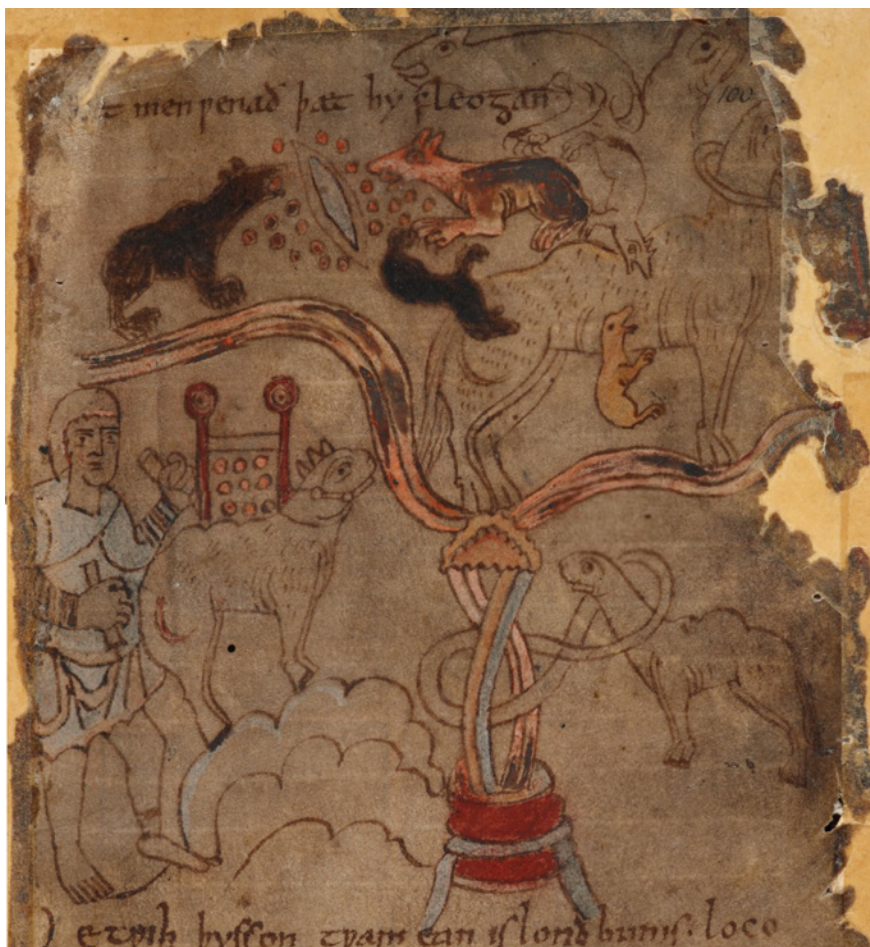 men ƿenað þæt hy fleogan
100
etƿih þysson tƿam ean is lond bunis: loco